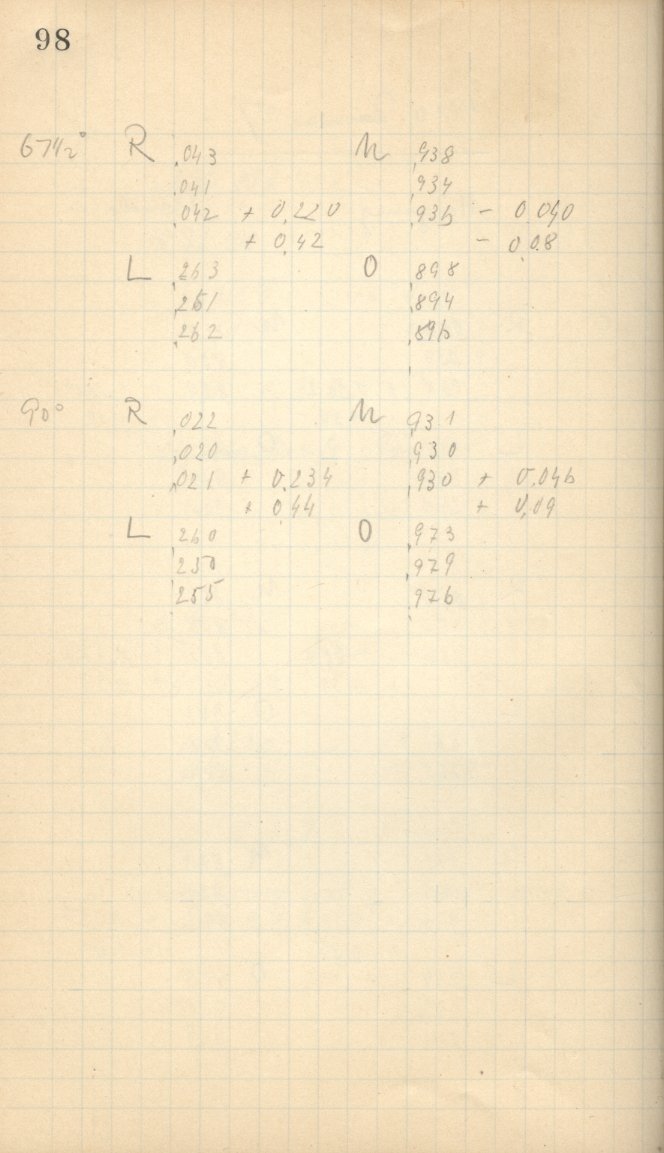 98
67½° R ,043 N ,938
,041 ,934
,042 + 0,220 ,936 - 0,040
+ 0,42 - 0,08
L ,263 O ,898
,261 ,894
,262 ,896
90° R ,022 N ,931
,020 ,930
,021 + 0,234 ,930 + 0,046
+ 0,44 + 0,09
L ,260 O ,973
,250 ,979
,255 ,976